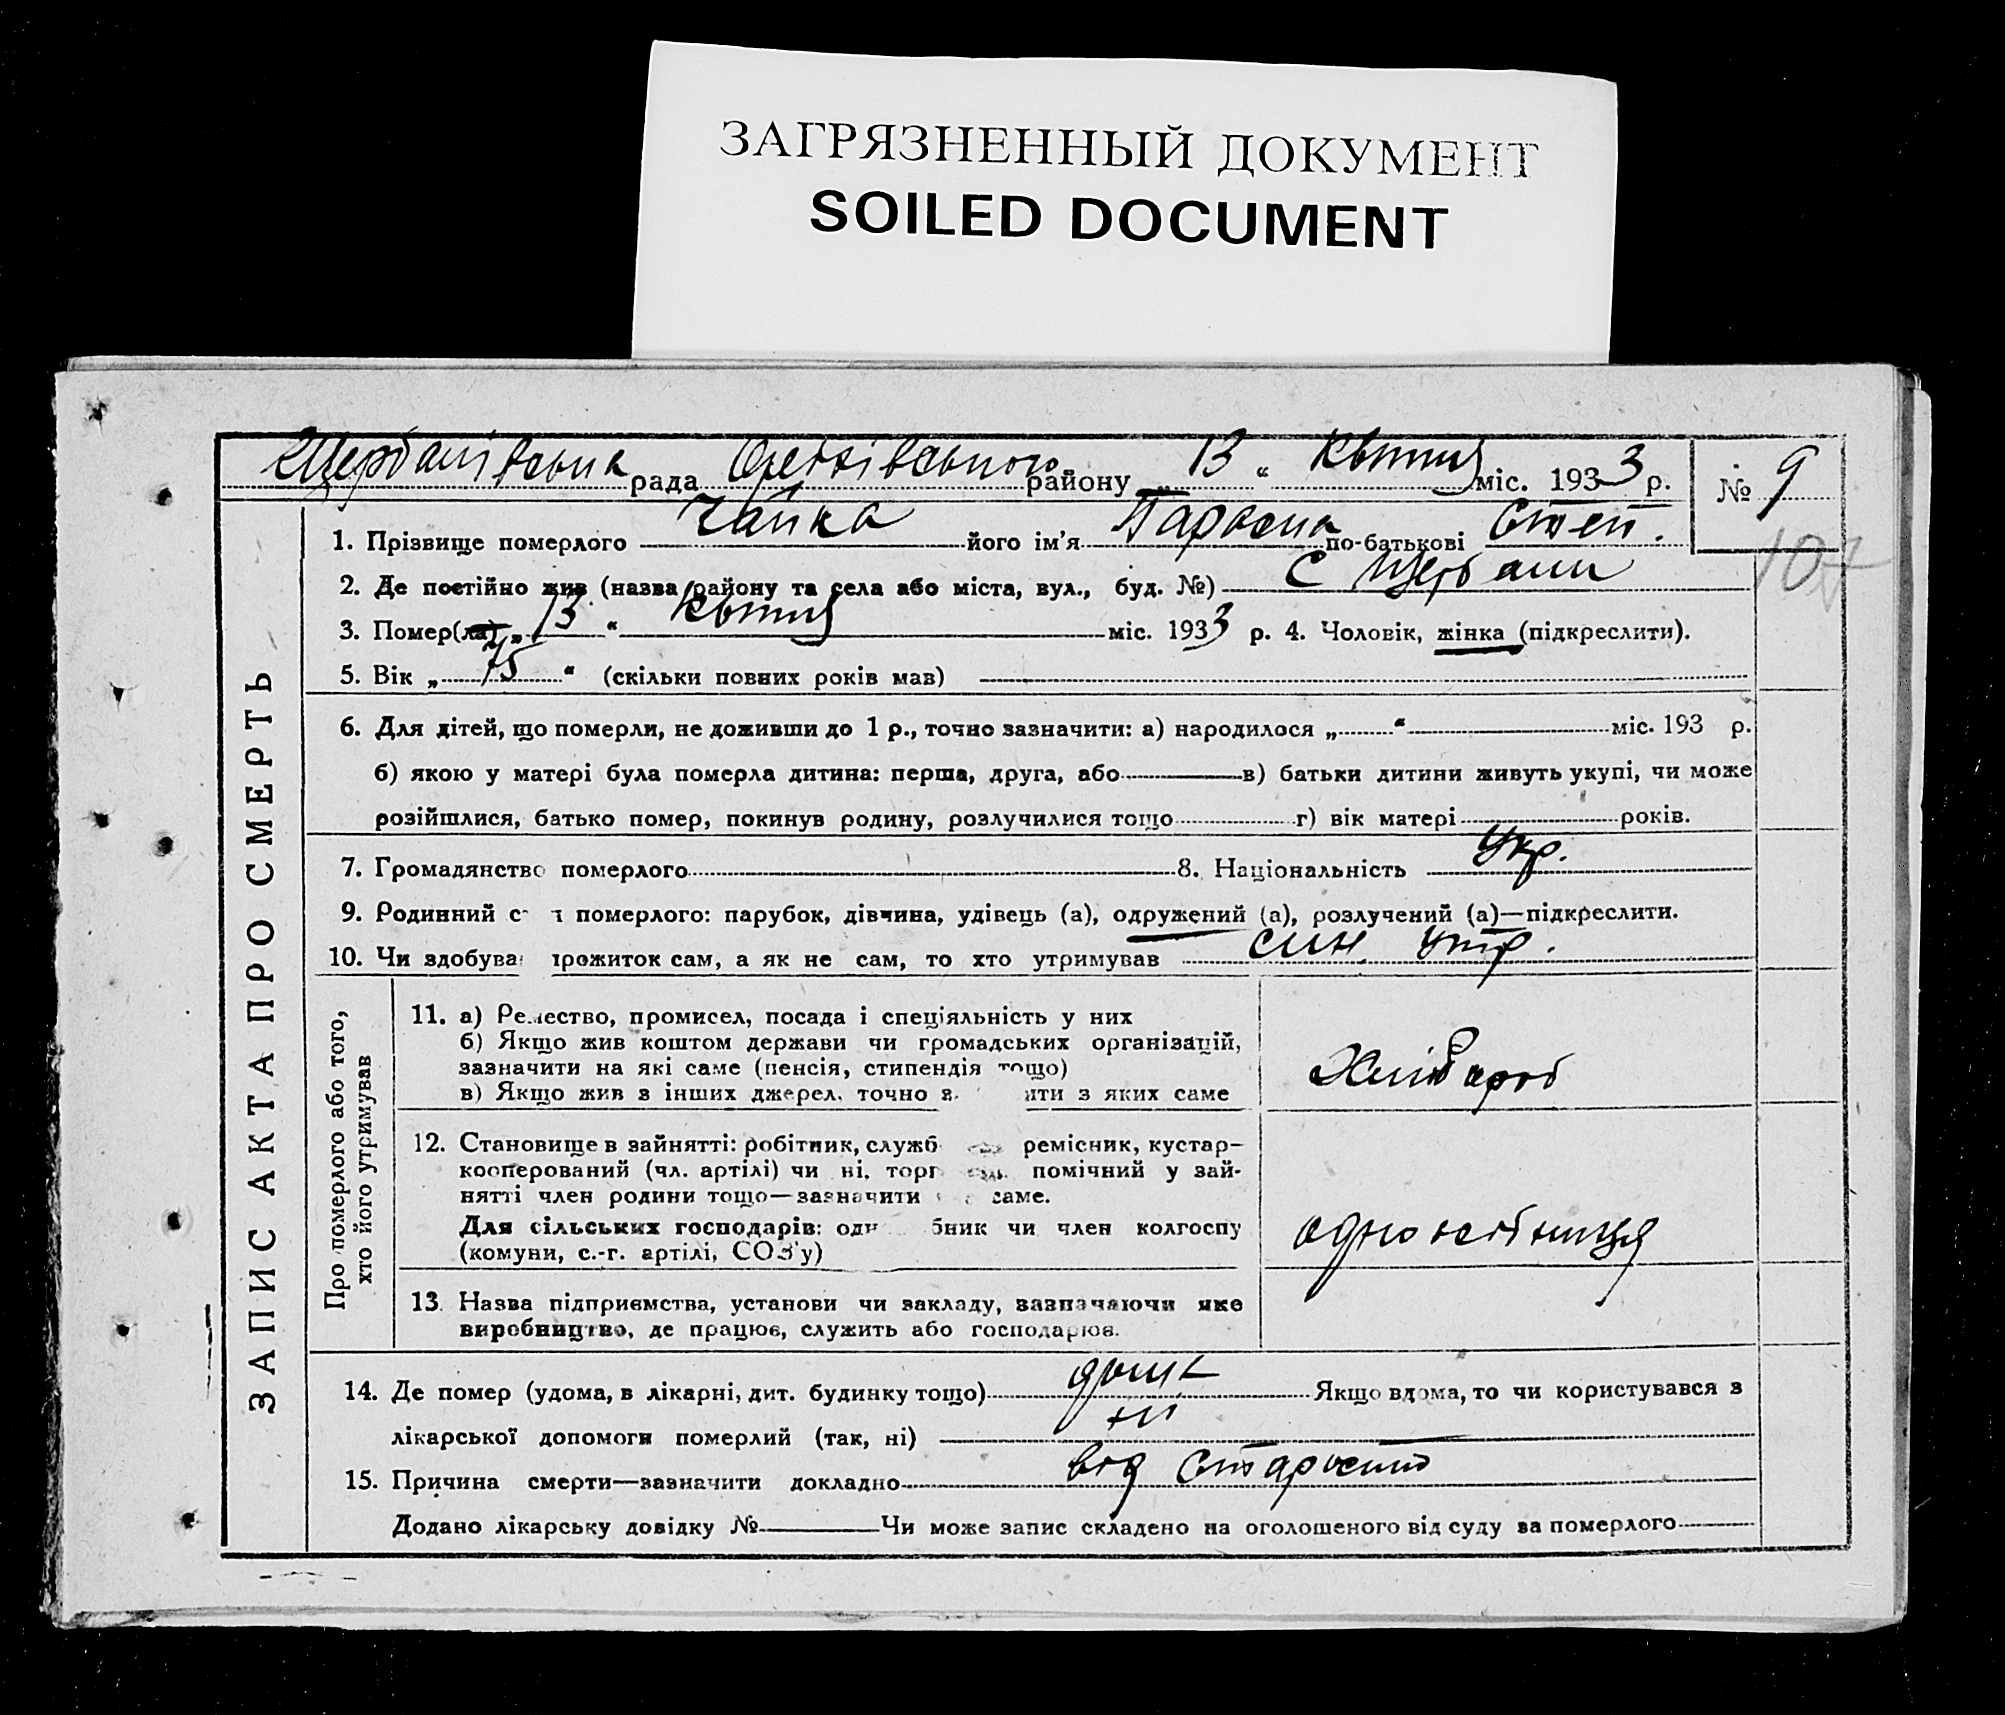 ЗАГРЯЗНЕННЫЙ ДОКУМЕНТ
SOILED DOCUMENT
Щербанівська рада району „ 13 “ Квітня міс. 1933 р. № 9
107
1. Прізвище померлого Чайка його ім'я Параска по-батькові Степ.
2. Де постійно жив (назва району та села або міста, вул., буд. №) с Щербани
3. Помер(ла) „ 13 “ Квітня міс. 1933 р. 4. Чоловік, жінка (підкреслити).
5. Вік „ 75 “ (скільки повних років мав)
6. Для дітей, що померли, не доживши до 1 р., точно зазначити: а) народилося „ “ міс. 193 р.
б) якою у матері була померла дитина: перша, друга, або в) батьки дитини живуть укупі, чи може
розійшлися, батько помер, покинув родину, розлучилися тощо г) вік матері років.
7. Громадянство померлого 8. Національність Укр.
9. Родинний померлого: парубок, дівчина, удівець (а), одружений (а), розлучений (а)—підкреслити.
10. Чи здобува прожиток сам, а як не сам, то хто утримував син утр.
ЗАПИС АКТА ПРО СМЕРТЬ
Про померлого або того,
хто його утримував
11. а) Ремество, промисел, посада і спеціяльність у них
б) Якщо жив коштом держави чи громадських організацій,
зазначити на які саме (пенсія, стипендія тощо)
в) Якщо жив з інших джерел, точно з яких саме
Хлібороб
12. Становище в зайнятті: робітник, служб ремісник, кустар-
кооперований (чл. артілі) чи ні, торг помічний у зай-
нятті член родини тощо—зазначити саме.
Для сільських господарів: одн бник чи член колгоспу
(комуни, с.-г. артілі, СОЗ'у)
одноосібниця
13. Назва підприємства, установи чи закладу, зазначаючи яке
виробництво, де працює, служить або господарює.
14. Де помер (удома, в лікарні, дит. будинку тощо) дома Якщо вдома, то чи користувався з
лікарської допомоги померлий (так, ні) ні
15. Причина смерти—зазначити докладно від старости
Додано лікарську довідку № Чи може запис складено на оголошеного від суду за померлого